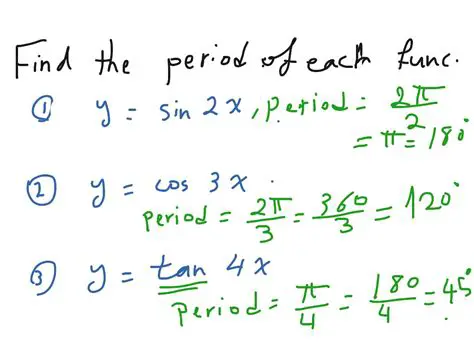 Find the period of each func.
① y = sin 2x, period = 2π/2
= π = 180°
② y = cos 3x .
period = 2π/3 = 360/3 = 120°
③ y = tan 4x
period = π/4 = 180/4 = 45°